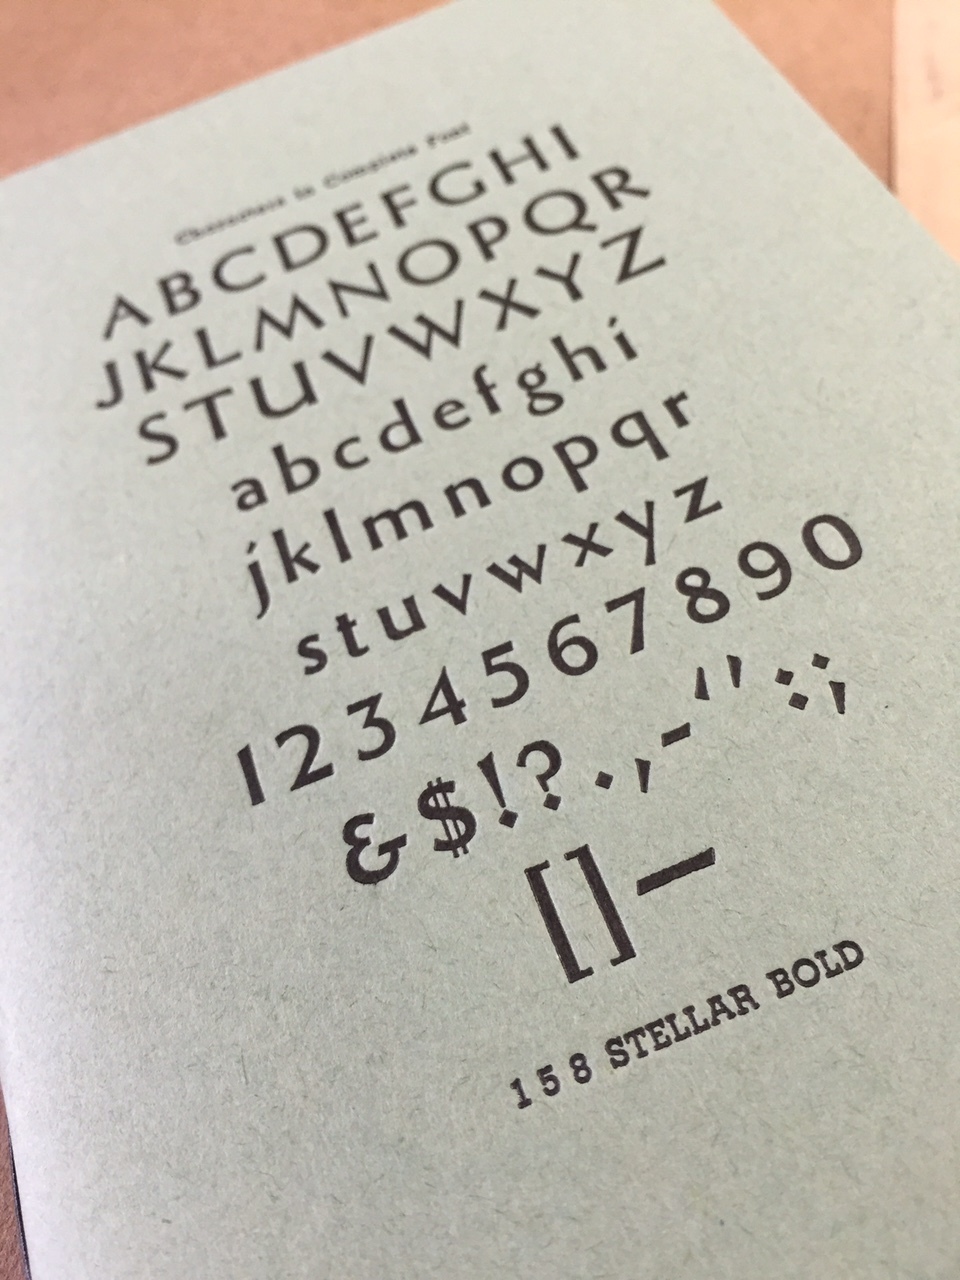 Characters in Complete Font
ABCDEFGHI
JKLMNOPQR
STUVWXYZ
abcdefghi
jklmnopqr
stuvwxyz
1234567890
&$!?.,-‘’:;
[]—
158 STELLAR BOLD